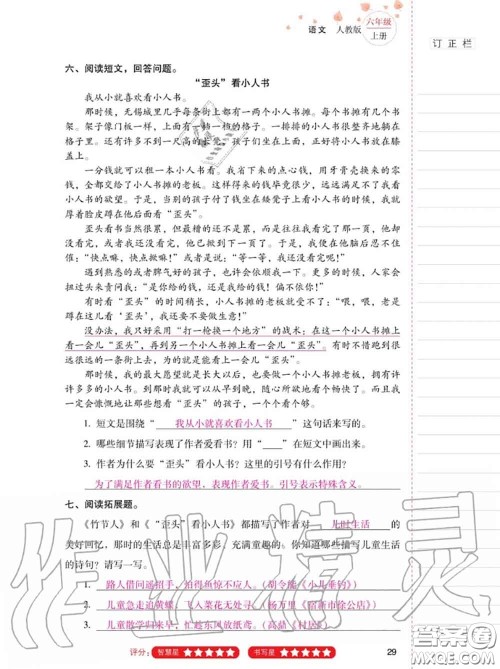 语文 人教版 六年级 上册
订正栏
六、阅读短文，回答问题。
“歪头”看小人书
我从小就喜欢看小人书。
那时候，无锡城里几乎每条街上都有一两个小人书摊。每个书摊前都有几个书
架。架子像门板一样，上面有一格一格的格子。一排排的小人书很整齐地躺在
格子里。还有许多不到一尺高的长凳，孩子们坐在上面，正好将小人书放在膝
盖上。
一分钱就可以租一本小人书看。我省下来的点心钱，用牙膏壳换来的零
钱，全都交给了小人书摊的老板。这样得来的钱毕竟很少，远远满足不了看小
人书的欲望。于是，当别的孩子付了钱坐在矮凳子上看小人书的时候，我就
厚着脸皮蹲在他后面看“歪头”。
歪头看书当然很累，但最糟的还不是累，而是往往我看完了那一页，他却
没有看完，或者我还没看完，他已掀到下一页了。于是，我便在他脑后忍不住
催：“快点嘛，快点掀嘛！”或者是：“等一等，我还没看完！”
遇到熟悉的或者脾气好的孩子，也许会依顺我一下。我们一起看。有的人家会
扭过头来责问我：“是你给的钱，还是我给的钱！偏不依你！”
有时看“歪头”的时间稍长，小人书摊的老板忍不住要干涉了：“喂，喂，老是
立在后面看‘歪头’，我还要不要做生意！”
没办法，我只好采用“打一枪换一个地方”的战术：在这一个小人书摊上
看一会儿“歪头”，再到另一个小人书摊上看一会儿“歪头”。有时不惜跑到很
远很远的一条街上去，为的就是能看上一会儿“歪头”。
那时候，我的最大愿望就是长大以后，也要做一个小人书摊的老板，这
样，我就可以看小人书从早到晚，随心所欲地看个畅快了。而且我
一定会慷慨地让那些想看“歪头”的孩子，一个个看个够。
1. 短文是围绕“我从小就喜欢看小人书”这句话来写的。
2. 哪些细节描写表现了作者爱看书？用“____”在短文中画出来。
3. 作者为什么要“歪头”看小人书？这里的引号有什么作用？
为了满足作者看书的欲望，表现作者爱书。引号表示特殊含义。
七、阅读拓展题。
《竹节人》和《“歪头”看小人书》都描写了作者对 儿时生活 的
美好回忆，那时的生活总是丰富多彩，充满童趣的。你还知道哪些描写儿童生活
的诗句？请写一写。
1. 路人借问遥招手，怕得鱼惊不应人。（胡令能《小儿垂钓》）
2. 儿童急走追黄蝶，飞入菜花无处寻。（杨万里《宿新市徐公店》）
3. 儿童散学归来早，忙趁东风放纸鸢。（高鼎《村居》）
评分： 智慧星 ★★★★★ 书写星 ★★★★★
29
作业精灵